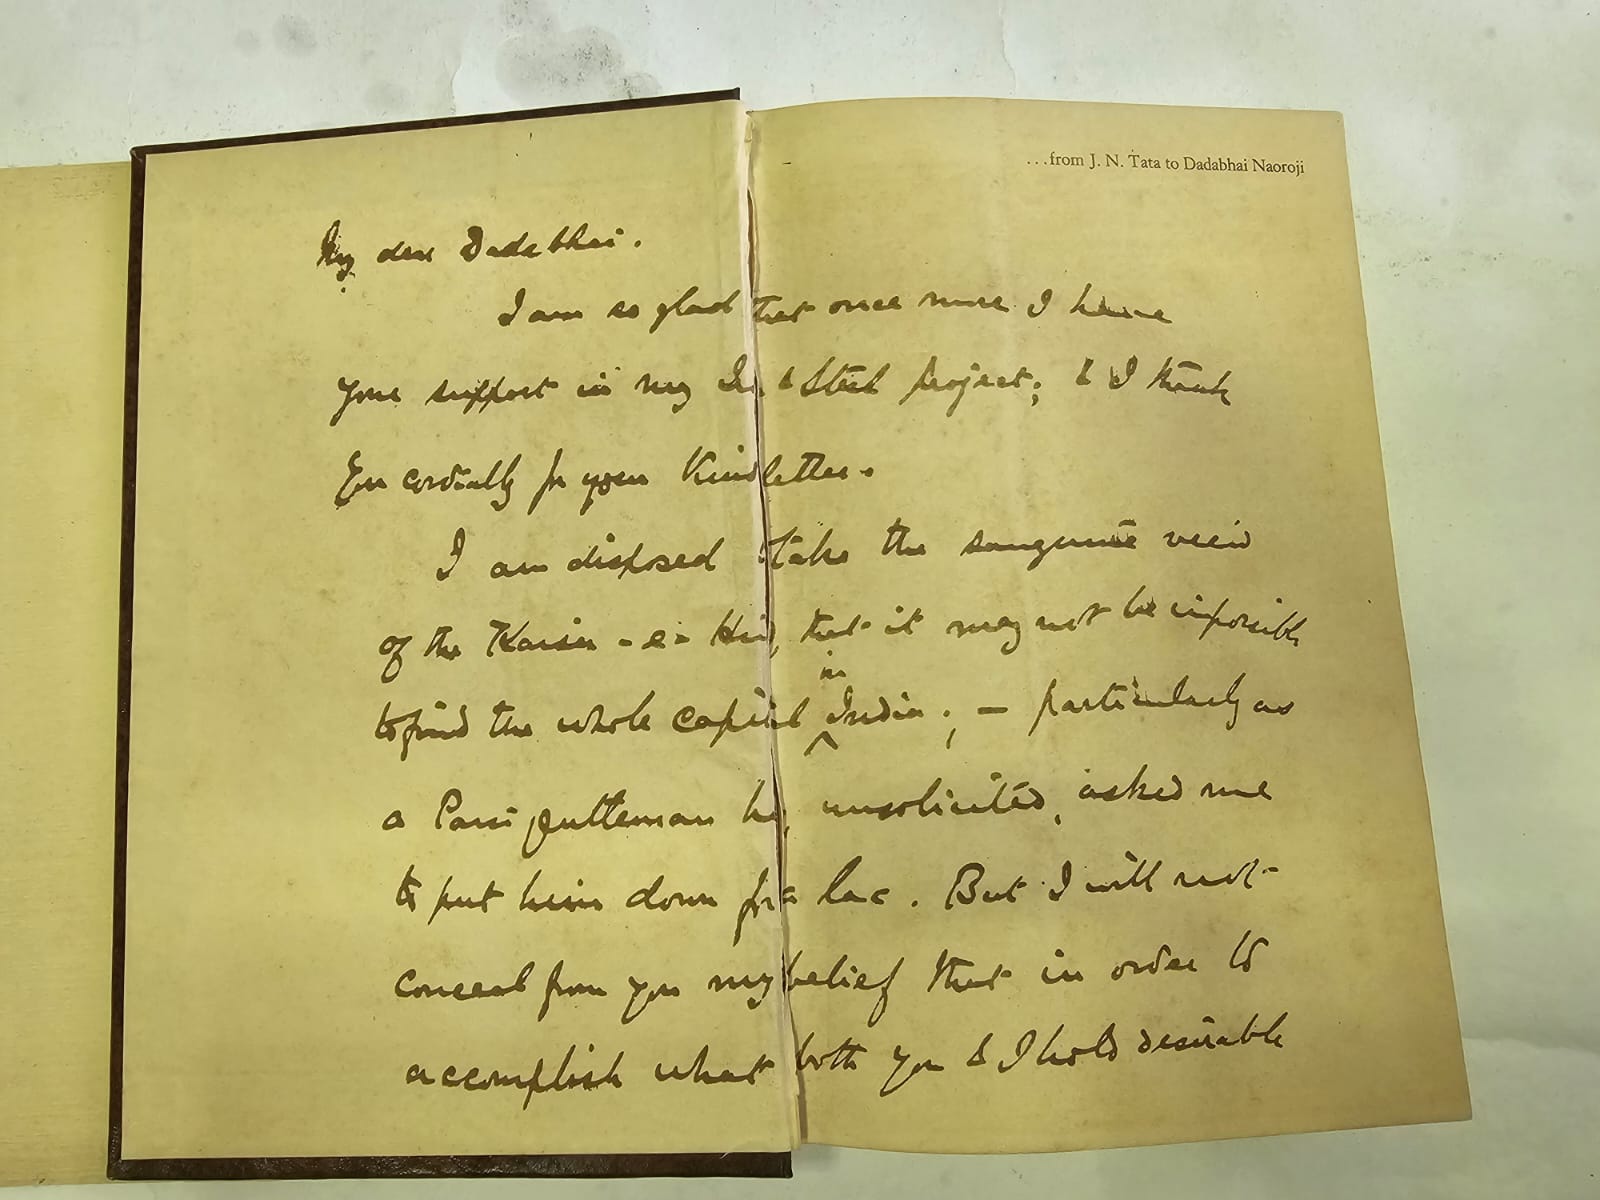 ...from J. N. Tata to Dadabhai Naoroji
My dear Dadabhai.
I am so glad that once more I have
your support in my & Steel project; & I thank
you cordially for your kind letter.
I am disposed to take the sanguine view
of the Kaiser-e-Hind, that it may not be impossible
to find the whole capital in India; — particularly as
a Parsi gentleman has, unsolicited, asked me
to put him down for a lac. But I will not
conceal from you my belief that in order to
accomplish what both you & I hold desirable